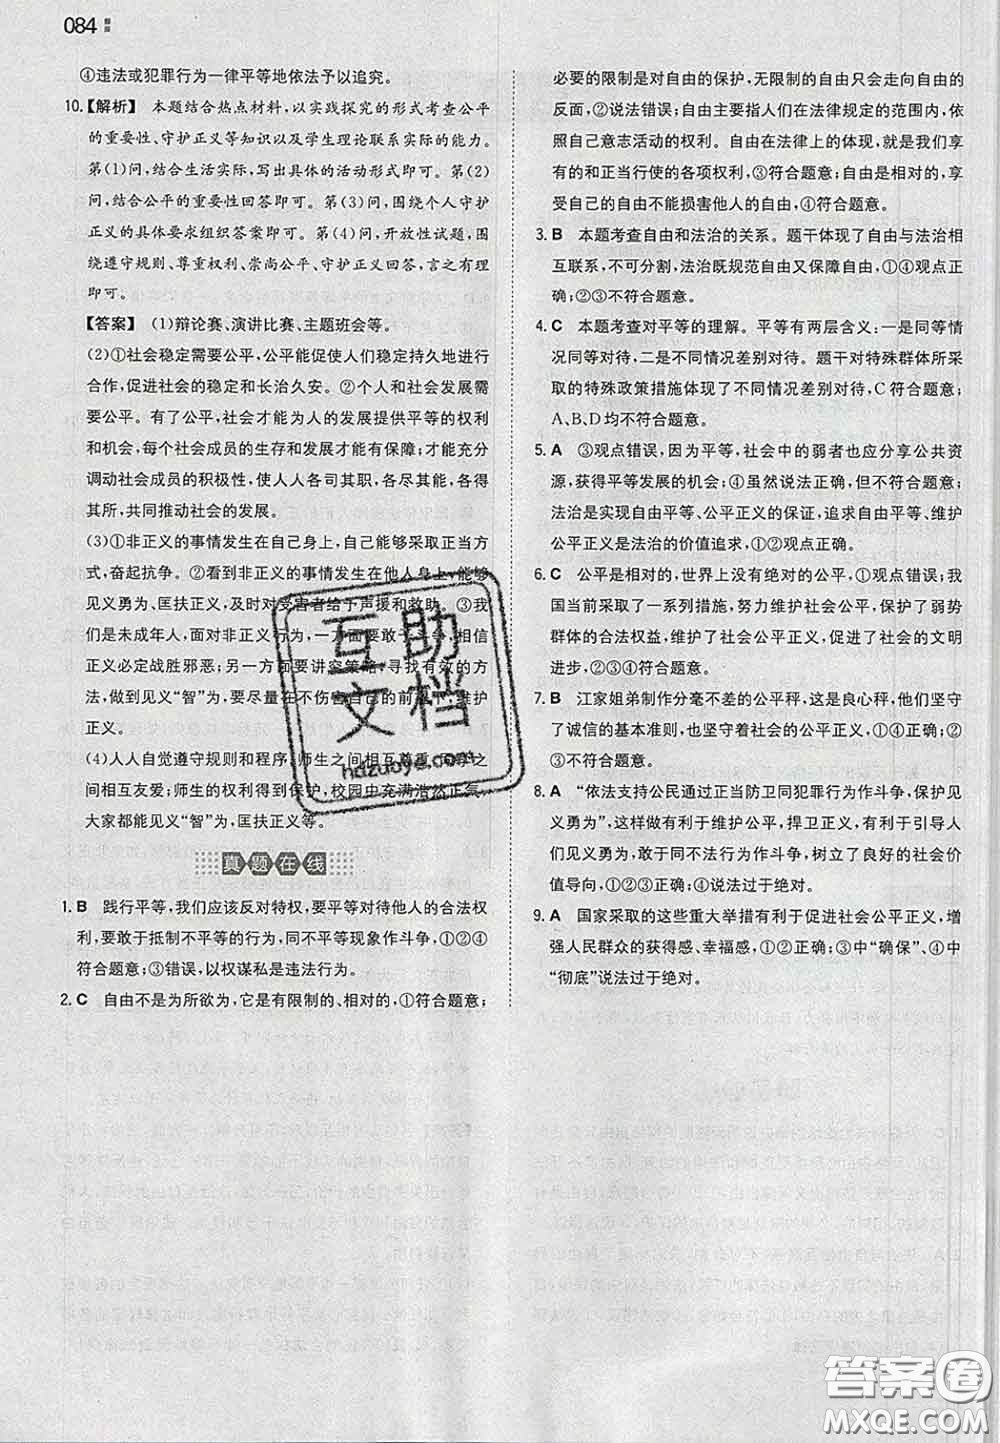 084
④违法或犯罪行为一律平等地依法予以追究。
10.【解析】 本题结合热点材料,以实践探究的形式考查公平
的重要性、守护正义等知识以及学生理论联系实际的能力。
第(1)问,结合生活实际,写出具体的活动形式即可。第(2)
问,结合公平的重要性回答即可。第(3)问,根据个人守护
正义的具体要求组织答案即可。第(4)问,开放性试题,围
绕遵守规则、尊重权利、崇尚公平、守护正义回答,言之有理
即可。
【答案】 (1)辩论赛、演讲比赛、主题班会等。
(2)①社会稳定需要公平,公平能促使人们持久地进行
合作,促进社会的稳定和长治久安。②个人和社会发展需
要公平。有了公平,社会才能为人的发展提供平等的权利
和机会,每个社会成员的生存和发展才有保障,才能充分
调动社会成员的积极性,使人人各司其职、各尽其力、各得
其所,共同推动社会的发展。
(3)①非正义的事情发生在自己身上,应采取正当方
式,奋起抗争。②看到非正义的事情发生在他人身上,能够
见义勇为、匡扶正义,及时对受害者给予声援和救助。③我
们是未成年人,面对非正义行为,一方面要敢于斗争,相信
正义必定战胜邪恶;另一方面要讲究策略,寻找有效的方
法,做到见义“智”为,要尽量在不伤害自己的前提下,维护
正义。
(4)人人自觉遵守规则和程序;师生之间相互尊重,同学之
间相互友爱;师生的权利得到保护,校园中充满浩然正气,
大家都能见义“智”为、匡扶正义等。
真题在线
1. B 践行平等,我们应该反对特权,要平等对待他人的合法权
利,要敢于抵制不平等的行为,同不平等现象作斗争,①②④
符合题意;③错误,以权谋私是违法行为。
2. C 自由不是为所欲为,它是有限制的、相对的,①符合题意;
必要的限制是对自由的保护,无限制的自由只会走向自由的
反面,②说法错误;自由主要指人们在法律规定的范围内,依
照自己意志活动的权利。自由在法律上的体现,就是我们享
有的和正当行使的各项权利,③符合题意;自由是相对的,享
受自己的自由不能损害他人的自由,④符合题意。
3. B 本题考查自由和法治的关系。题干体现了自由与法治相
互联系,不可分割,法治既规范自由又保障自由,①④观点正
确;②③不符合题意。
4. C 本题考查对平等的理解。平等有两层含义:一是同等情
况同等对待,二是不同情况差别对待。题干对特殊群体所采
取的特殊政策措施体现了不同情况差别对待,C符合题意;
A、B、D均不符合题意。
5. A ③观点错误,因为平等,社会中的弱者也应分享公共资
源,获得平等发展的机会;④虽然说法正确,但不符合题意;
法治是实现自由平等、公平正义的保证,追求自由平等、维护
公平正义是法治的价值追求,①②观点正确。
6. C 公平是相对的,世界上没有绝对的公平,①观点错误;我
国当前采取了一系列措施,努力维护社会公平,保护了弱势
群体的合法权益,维护了社会公平正义,促进了社会的文明
进步,②③④符合题意。
7. B 江家姐弟制作分毫不差的公平秤,这是良心秤,他们坚守
了诚信的基本准则,也坚守着社会的公平正义,①④正确;②
③不符合题意。
8. A “依法支持公民通过正当防卫同犯罪行为作斗争,保护见
义勇为”,这样做有利于维护公平,捍卫正义,有利于引导人
们见义勇为,敢于同不法行为作斗争,树立了良好的社会价
值导向,①②③正确;④说法过于绝对。
9. A 国家采取的这些重大举措有利于促进社会公平正义,增
强人民群众的获得感、幸福感,①②正确;③中“确保”、④中
“彻底”说法过于绝对。
互助
文档
hdzuoye.com
答案圈
MXQE.COM